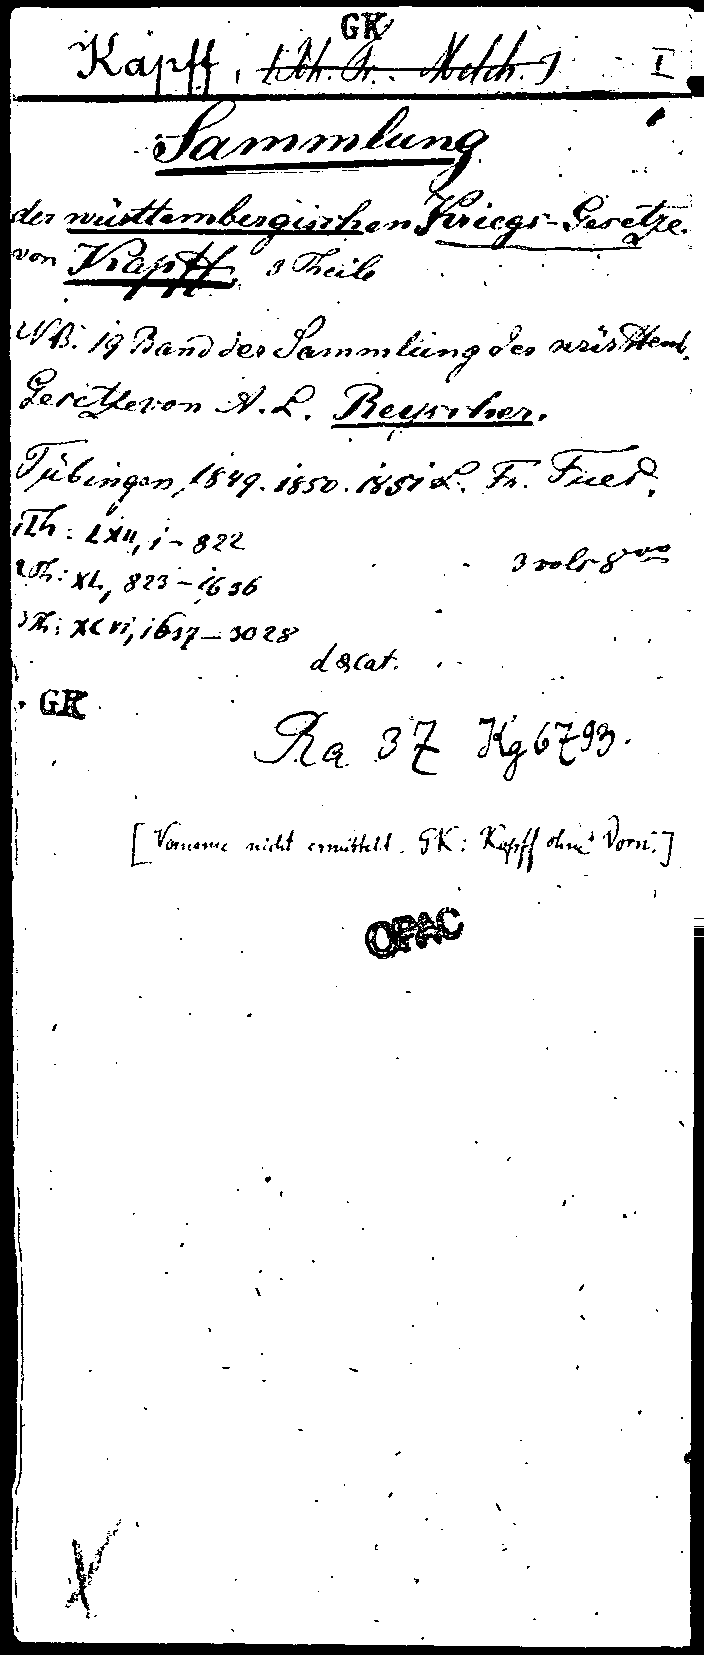 GK
Kapff, (Joh. Fr. Melch.) I
Sammlung
der württembergischen Kriegs-Gesetze.
von Kapff. 3 Theile
NB. 19 Band der Sammlung der württemb.
Gesetze von A. L. Reyscher.
Tübingen, 1849. 1850. 1851 L. Fr. Fues.
1Th: LXII, 1-822
3 vols 8voo
2Th: XL, 823-1636
3Th: XCVI, 1637-3028
d & cat.
GK
Ra 37 Kg 6793.
[Vorname nicht ermittelt. GK: Kapff ohne Vorn.]
OPAC